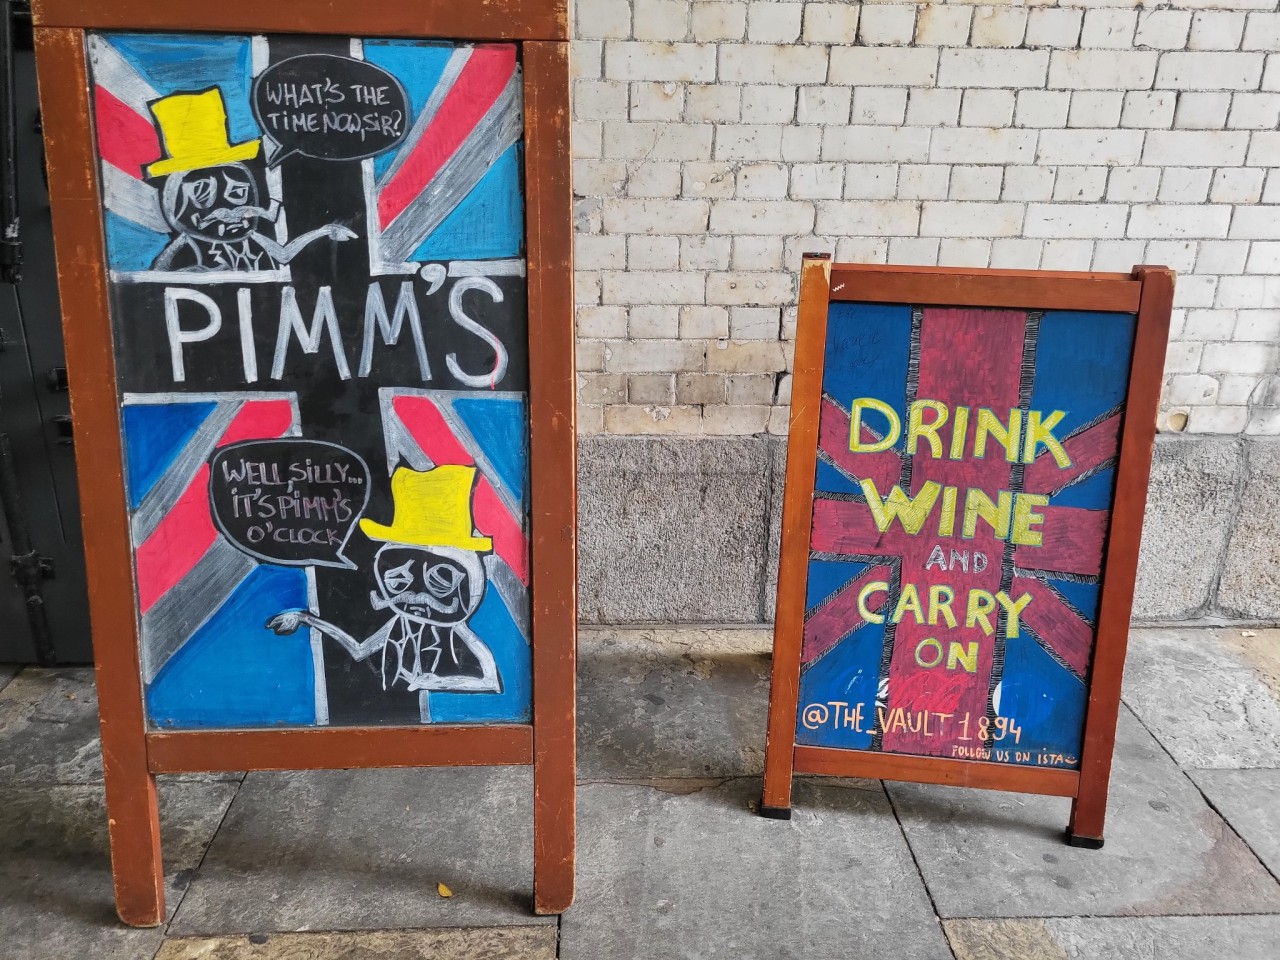 WHAT'S THE
TIME NOW, SIR?
PIMM'S
WELL, SILLY...
IT'S PIMM'S
O'CLOCK
DRINK
WINE
AND
CARRY
ON
@THE_VAULT1894
FOLLOW US ON ISTA